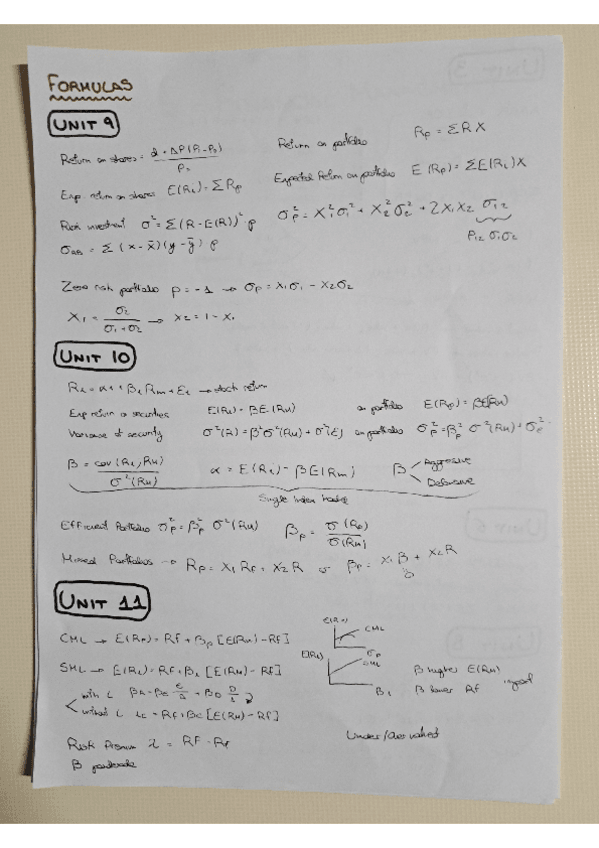 FORMULAS
UNIT 9
Return on shares = d + ΔP (P₁ - P₀) / P₀
Return on portfolio Rp = Σ R X
Exp. return on shares E(Ri) = Σ Rp
Expected Return on portfolio E(Rp) = Σ E(Ri) X
Risk investment σ² = Σ (R - E(R))² p
σp² = X₁² σ₁² + X₂² σ₂² + 2 X₁ X₂ σ₁₂
ρ₁₂ σ₁ σ₂
σAB = Σ (x - x̄)(y - ȳ) p
Zero risk portfolio ρ = -1 → σp = X₁σ₁ - X₂σ₂
X₁ = σ₂ / σ₁ + σ₂ → X₂ = 1 - X₁
UNIT 10
Ri = αi + Bi Rm + Ei → stock return
Exp return on securities E(Ri) = βE(RM) on portfolio E(Rp) = βE(RM)
Variance of security σ²(R) = β²σ²(RM) + σ²(E) on portfolio σp² = βp² σ²(RM) + σe²
β = cov(Ri, RM) / σ²(RM)
α = E(Ri) - βE(Rm)
β Aggressive
Defensive
Single index model
Efficient Portfolio σp² = βp² σ²(RM) βp = σ(Rp) / σ(RM)
Mixed Portfolios → Rp = X₁ RF + X₂ R or βp = X₁ B + X₂ B
0
UNIT 11
CML → E(Rp) = RF + Bp [E(RM) - RF]
E(Rp)
CML
σp
SML → E(Ri) = RF + Bi [E(RM) - RF]
E(Ri)
SML
Bi
B higher E(RM)
B lower RF
with L
without L
+ Bc [E(RM) - RF]
Risk Premium
Under/Overvalued
B